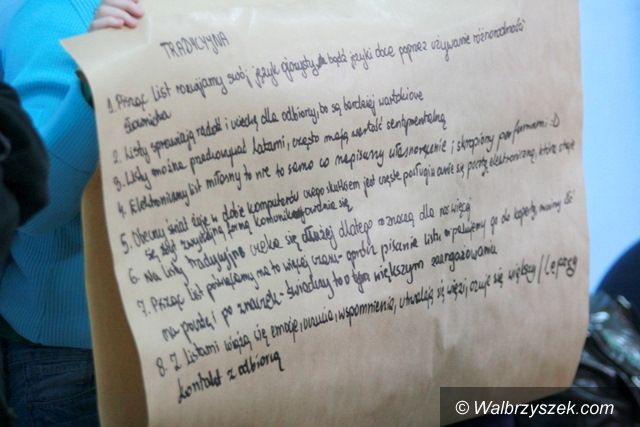 TRADYCYJNA
1. Pisząc list rozwijamy swój język ojczysty, bądź języki obce poprzez używanie różnorodności
słownictwa
2. Listy sprawiają radość i uciechę dla odbiorcy, bo są bardziej wartościowe
3. Listy można przechowywać latami, często mają wartość sentymentalną
4. Elektroniczny list miłosny to nie to samo co napisany własnoręcznie i skropiony perfumami :D
5. Obecny świat żyje w dobie komputerów czego skutkiem jest częste posługiwanie się pocztą elektroniczną, która staje
się zbyt zwyczajną formą komunikowania się
6. Na listy tradycyjne czeka się dłużej dlatego znaczą dla nas więcej
7. Pisząc list poświęcamy na to więcej czasu - oprócz pisania listu, wpakujemy go do koperty, musimy iść
na pocztę i po znaczek - świadczy to o tym większym zaangażowaniu
8. Z listami wiążą się emocje, uczucia, wspomnienia, utrwalają się więzi, czuje się większy/lepszy
kontakt z odbiorcą
© Walbrzyszek.com